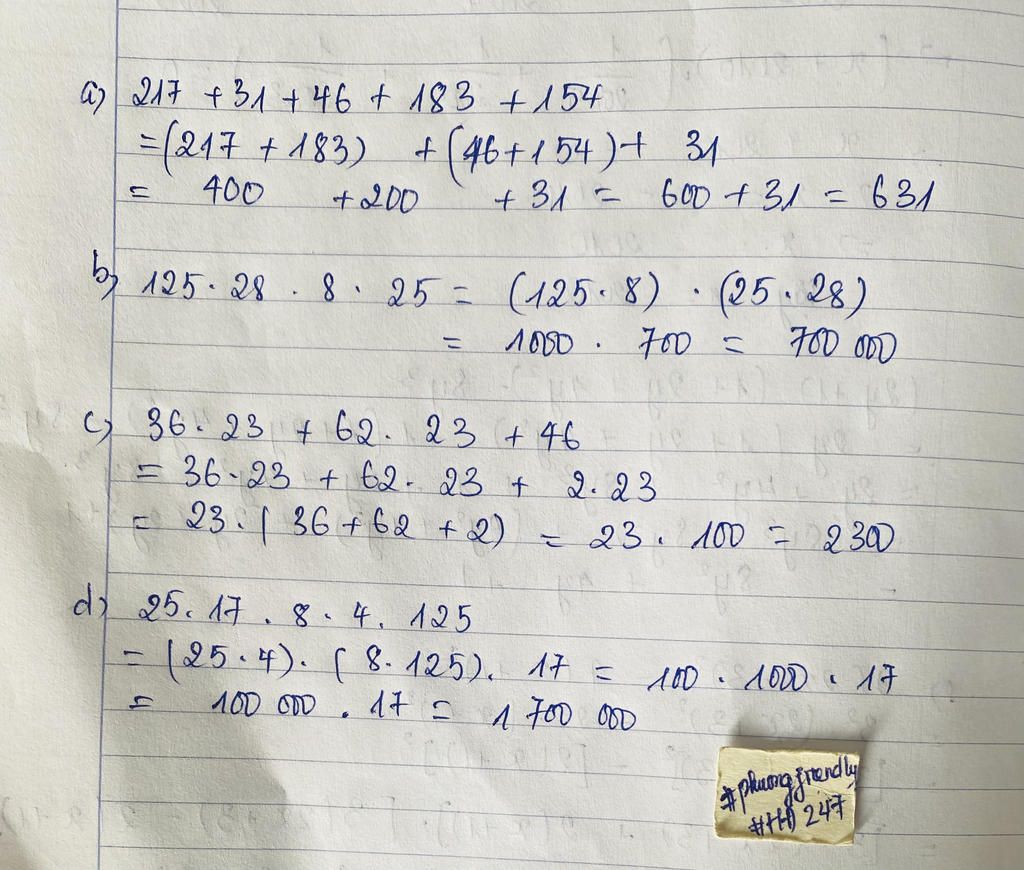 a) 217 + 31 + 46 + 183 + 154
= (217 + 183) + (46 + 154) + 31
= 400 + 200 + 31 = 600 + 31 = 631
b) 125 . 28 . 8 . 25 = (125 . 8) . (25 . 28)
= 1000 . 700 = 700 000
c) 36 . 23 + 62 . 23 + 46
= 36 . 23 + 62 . 23 + 2 . 23
= 23 . (36 + 62 + 2) = 23 . 100 = 2300
d) 25 . 17 . 8 . 4 . 125
= (25 . 4) . (8 . 125) . 17 = 100 . 1000 . 17
= 100 000 . 17 = 1 700 000
#phuongfriendly
247